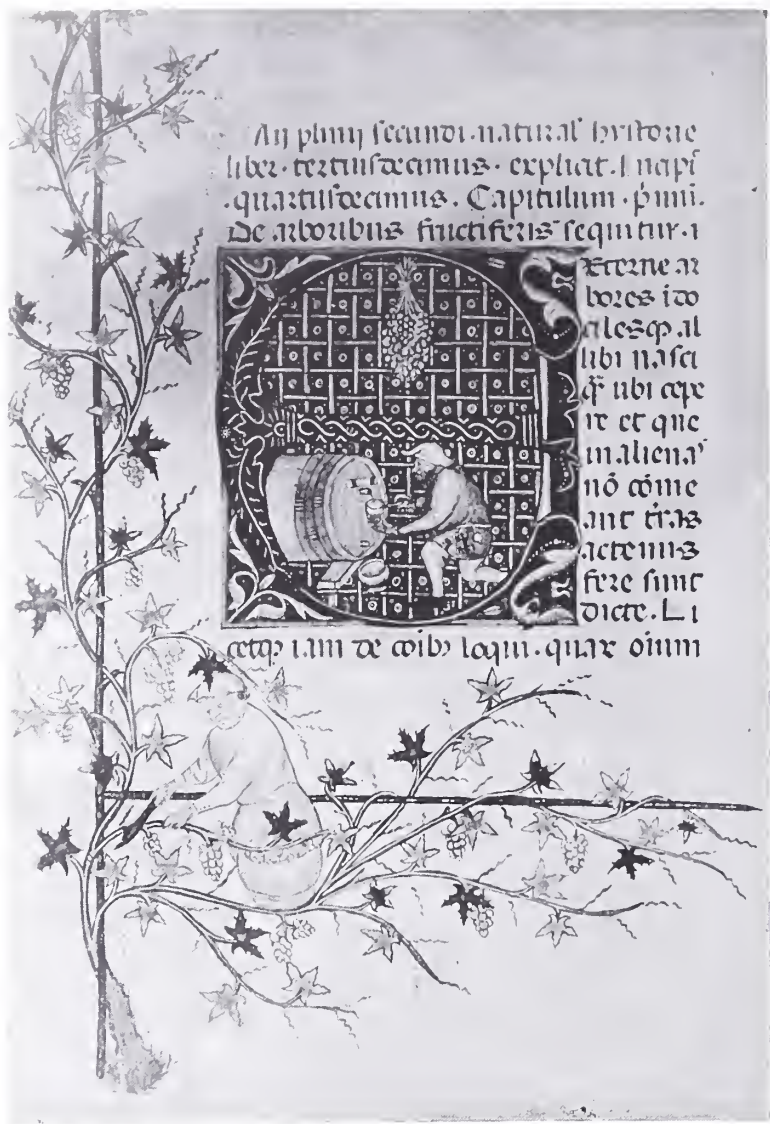 plinij secundi · naturał hystorie
liber · tertiusdecimus · explicat. Incipi̅
· quartusdecimus. Capitulum · p̅mu̅.
De arboribus fructiferis sequitur · 
Externe ar
bores ido
cilesqꝫ al
libi nasci
qȝ ubi cepe
re et que
in aliena'
nō cōme
ant t̅ras
actenus
fere sunt
dicte. Li
cetqꝫ iam de coibꝫ loqui · quae oium